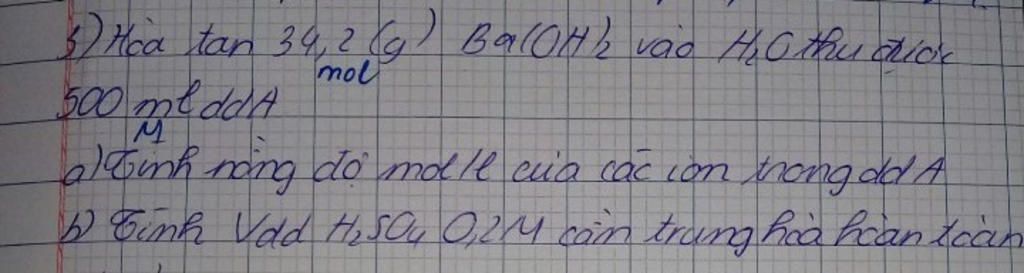 3) Hòa tan 34,2 (g) Ba(OH)2 vào H2O thu được
mol
500 ml ddA
M
a) Tính nồng độ mol/l của các ion trong ddA
b) Tính Vdd H2SO4 0,2M cần trung hòa hoàn toàn